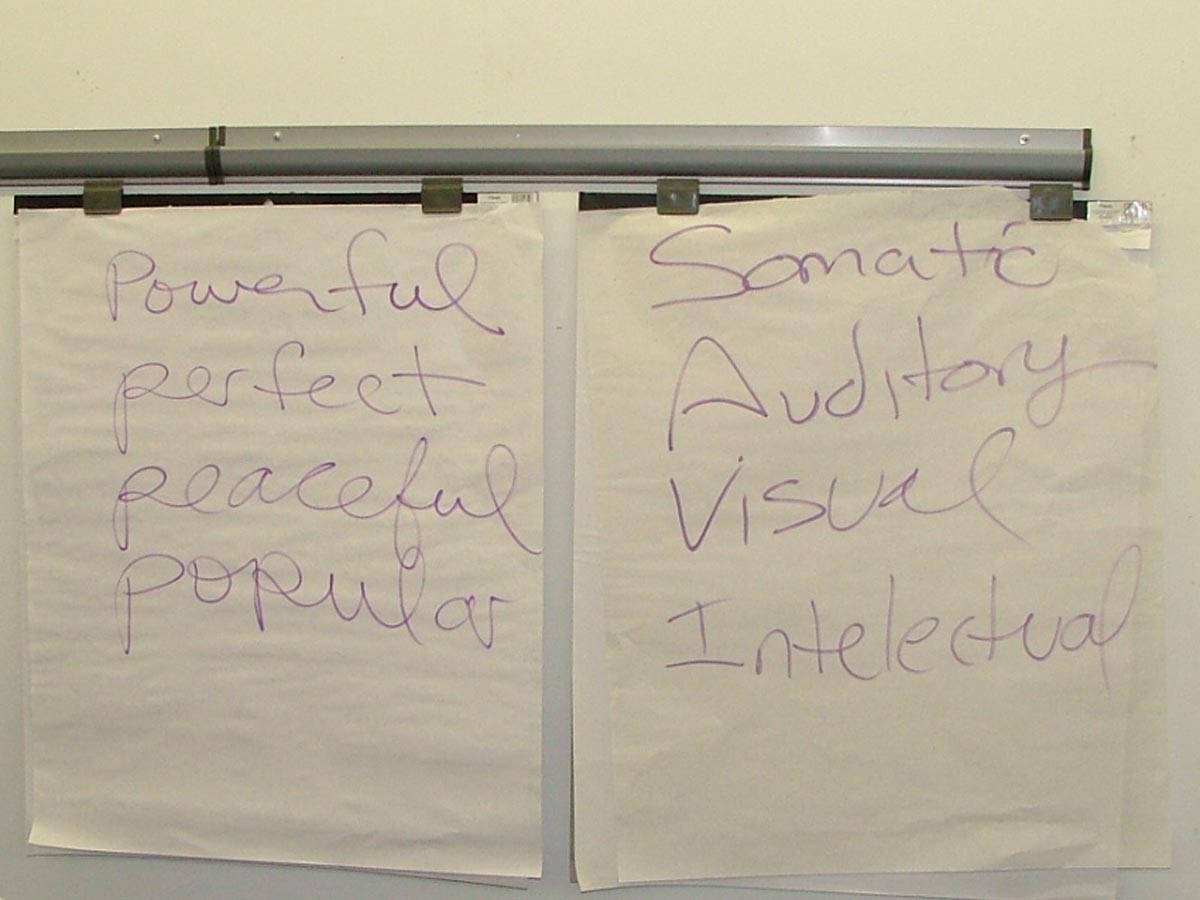 Powerful
perfect
peaceful
popular
Somatic
Auditory
Visual
Intelectual